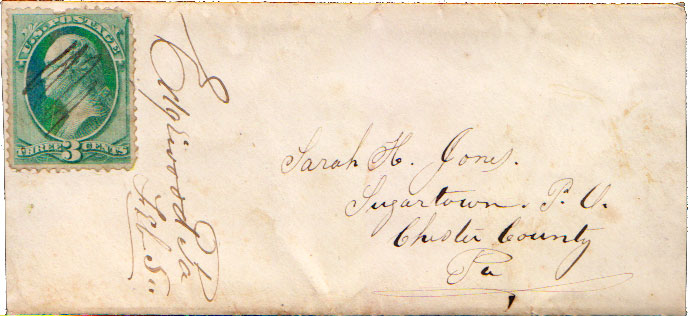 U.S. POSTAGE
THREE 3 CENTS
Edgewood Pa
Feb 5"
Sarah H. Jones.
Sugartown. P. O.
Chester County
Pa